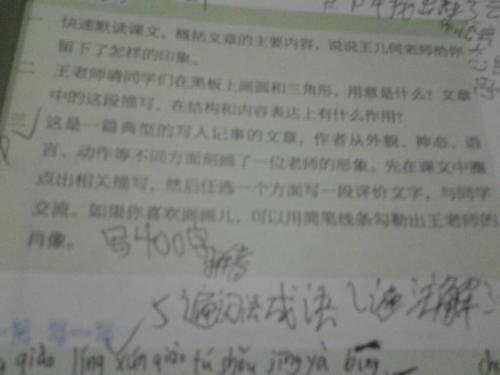 一 快速默读课文，概括文章的主要内容，说说王几何老师给你
留下了怎样的印象。
二 王老师请同学们在黑板上画圆和三角形，用意是什么？文章
中的这段描写，在结构和内容表达上有什么作用？
三 这是一篇典型的写人记事的文章，作者从外貌、神态、语
言、动作等不同方面刻画了一位老师的形象。先在课文中圈
点出相关描写，然后任选一个方面写一段评价文字，与同学
交流。如果你喜欢画画儿，可以用简笔线条勾勒出王老师的
肖像。 写400字
5遍词语成语 1遍注解
写一写
qiào líng xún qiáo tú shǒu jīng yà bīng